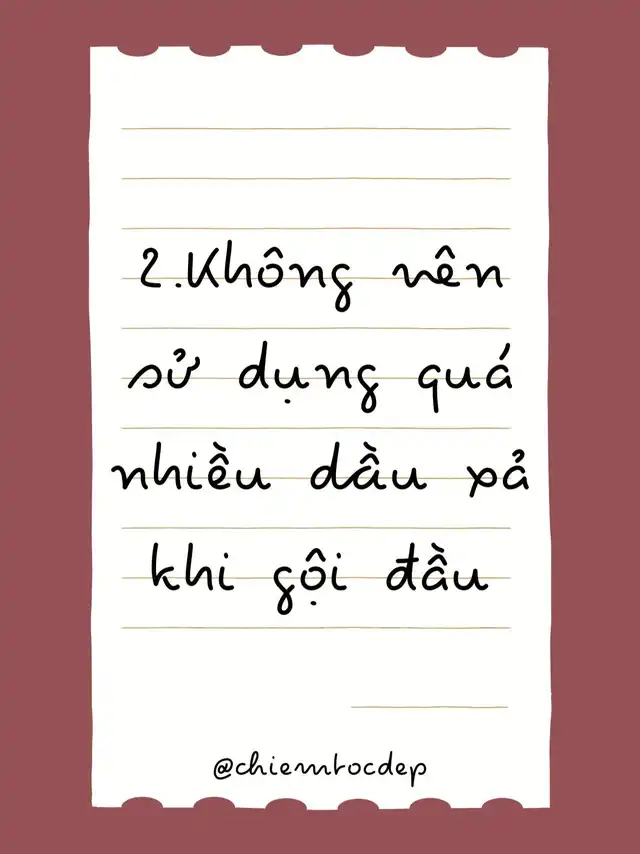 2.Không nên
sử dụng quá
nhiều dầu xả
khi gội đầu
@chiemtocdep